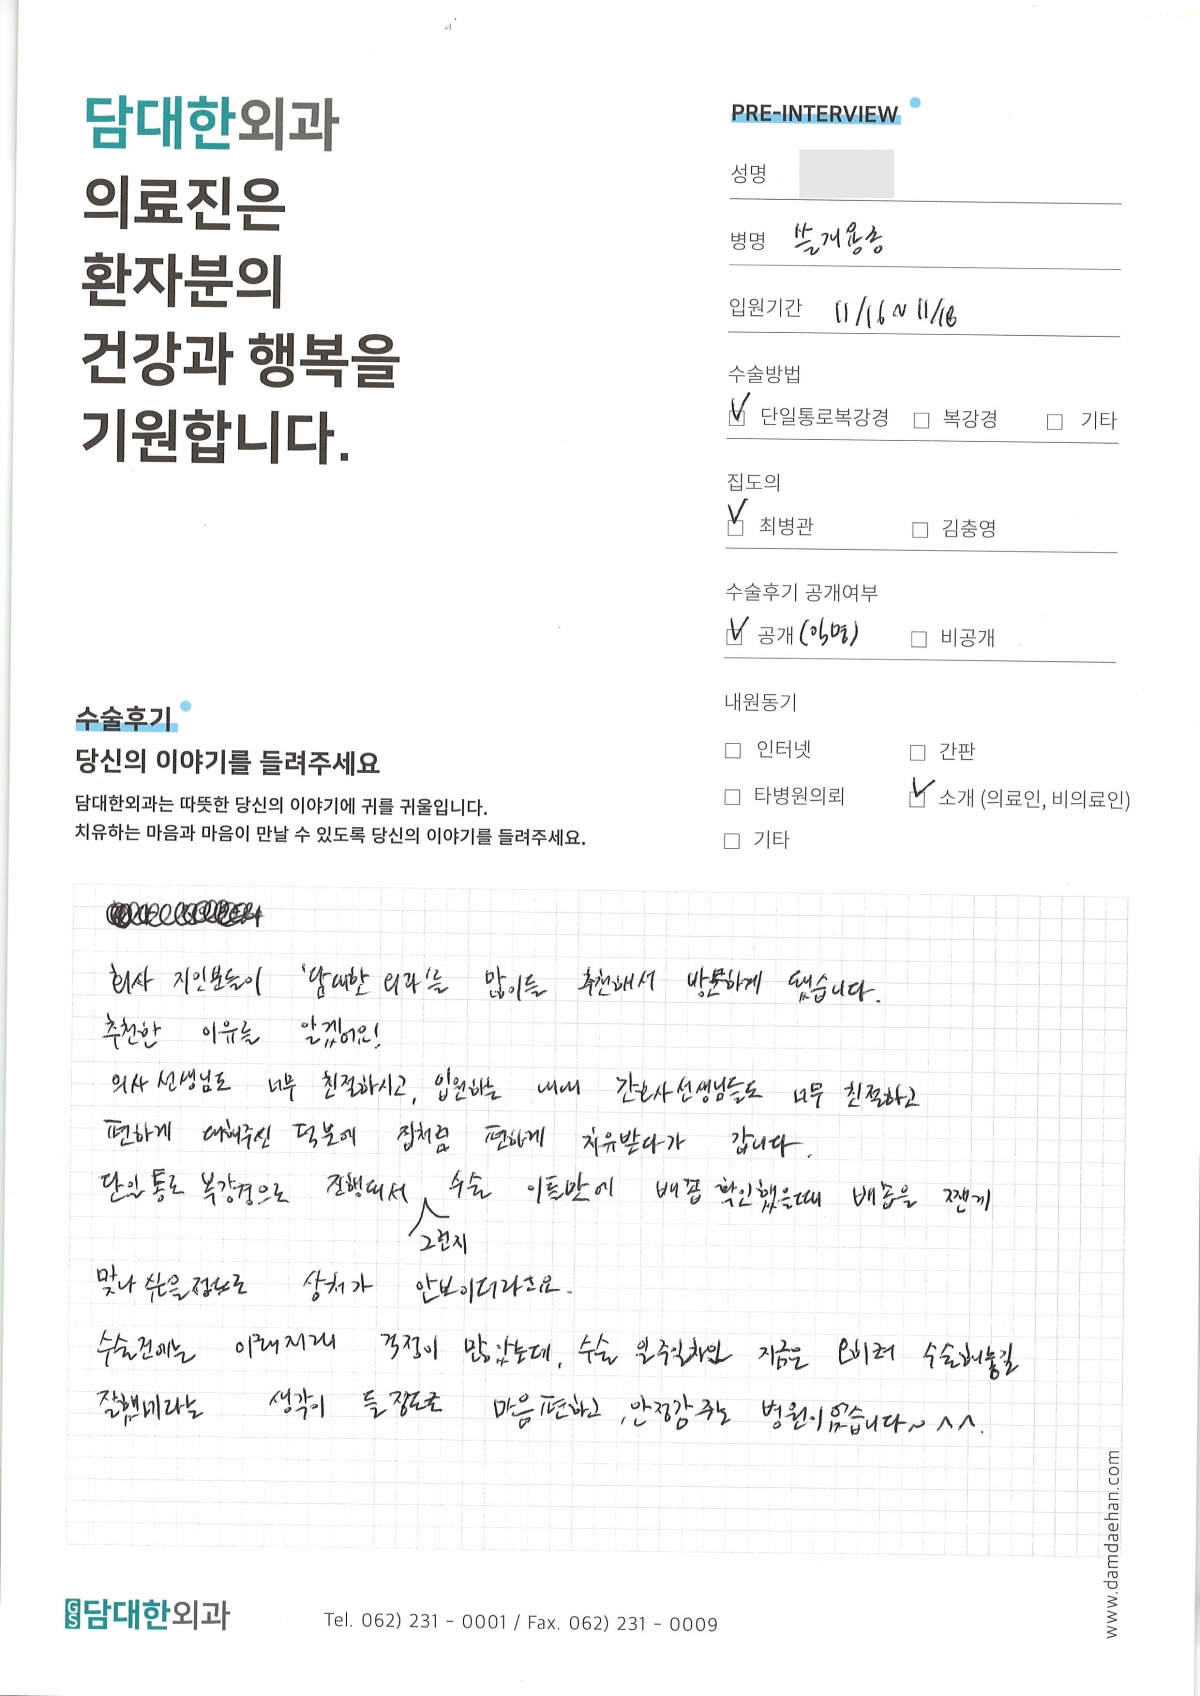 담대한외과
의료진은
환자분의
건강과 행복을
기원합니다.
PRE-INTERVIEW
성명
병명 쓸개용종
입원기간 11/16 ~ 11/18
수술방법
단일통로복강경 복강경 기타
집도의
최병관 김충영
수술후기 공개여부
공개 (익명) 비공개
내원동기
인터넷 간판
타병원의뢰 소개 (의료인, 비의료인)
기타
수술후기
당신의 이야기를 들려주세요
담대한외과는 따뜻한 당신의 이야기에 귀를 귀울입니다.
치유하는 마음과 마음이 만날 수 있도록 당신의 이야기를 들려주세요.
회사 지인분들이 '담대한 외과'를 많이들 추천해서 방문하게 됐습니다.
추천한 이유를 알겠어요!
의사 선생님도 너무 친절하시고, 입원하는 내내 간호사선생님들도 너무 친절하고
편하게 대해주신 덕분에 집처럼 편하게 치유받다가 갑니다.
단일통로 복강경으로 진행돼서 수술 이틀만에 배꼽 확인했을때 배꼽을 짼게
그런지
맞나 싶을정도로 상처가 안보이더라고요.
수술전에는 이래저래 걱정이 많았는데, 수술 일주일차인 지금은 오히려 수술해놓길
잘했네라는 생각이 들정도로 마음편하고, 안정감 주는 병원이었습니다~ ^^.
GS 담대한외과
Tel. 062) 231 - 0001 / Fax. 062) 231 - 0009
www.damdaehan.com